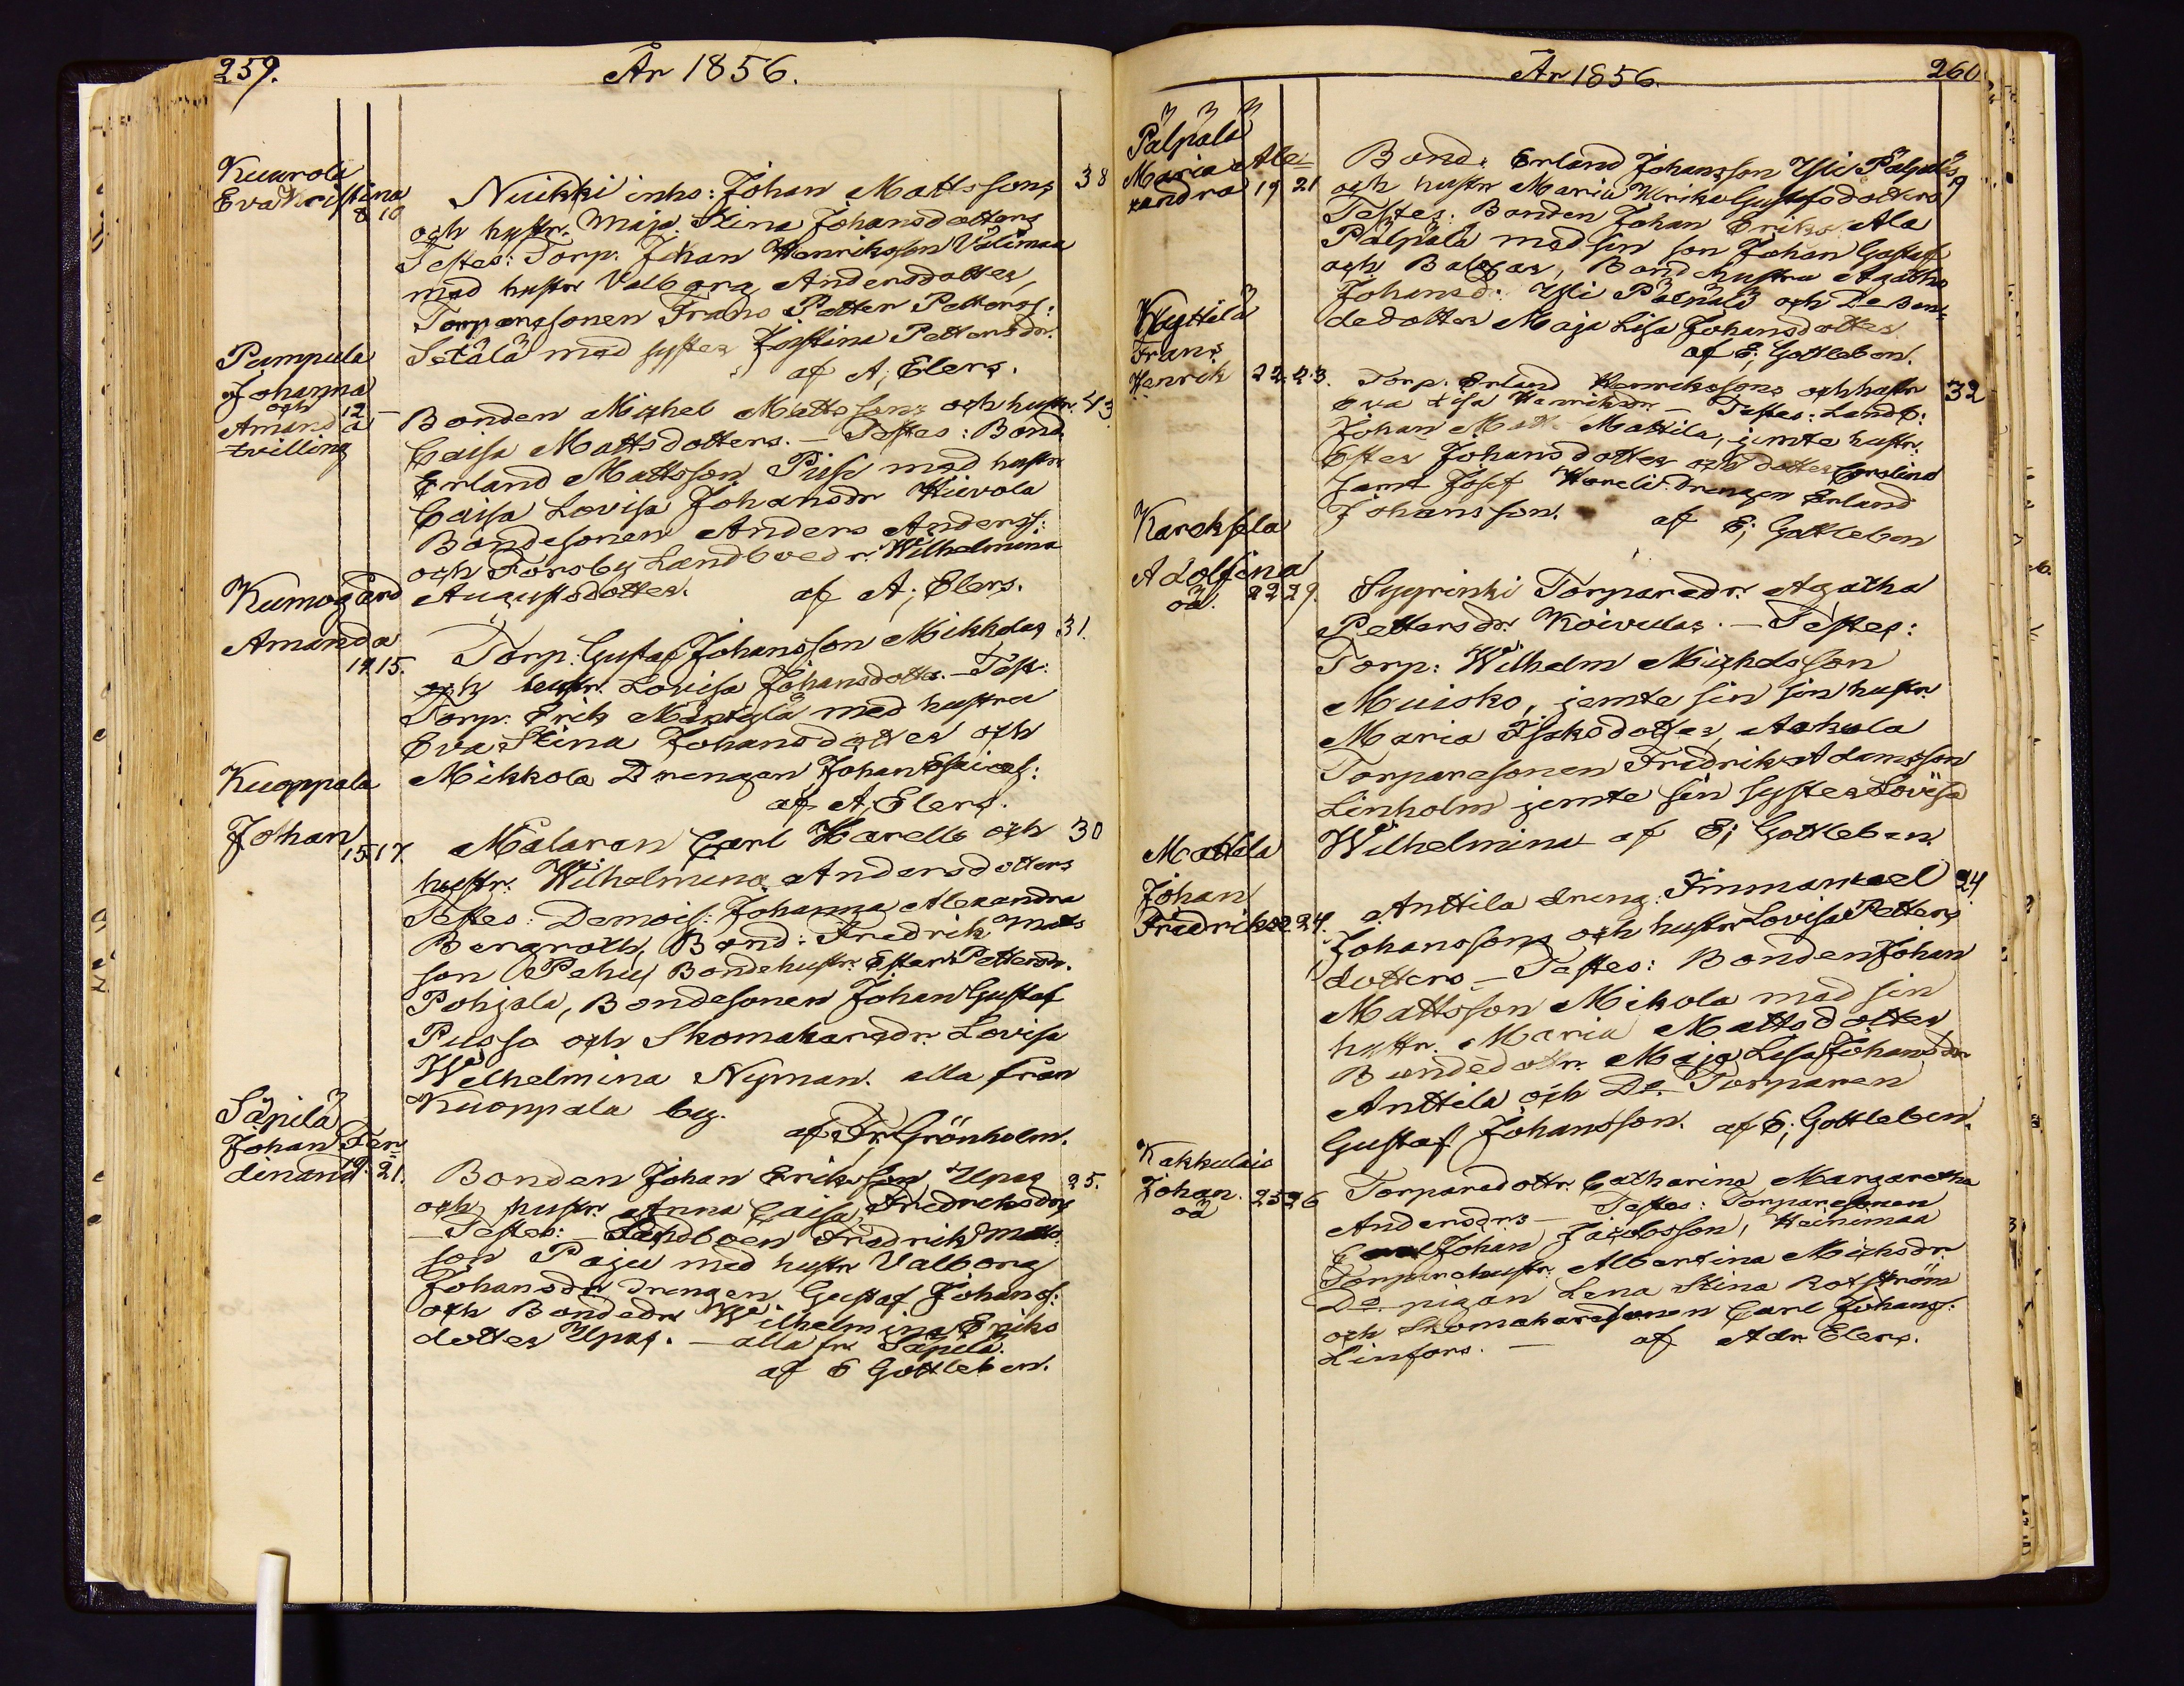 259. År 1856.
Kuurola
Eva Kristina
8 10
Nuikki inhs: Johan Mattssons 38
och hustr. Maja Stina Johansdotters
Testes: Torp. Johan Henriksson Välimaa
med hustr Valborg Andersdotter,
Torparesonen Frans Petter Petterss:
Setälä med syster Justina Pettersdr.
af A; Elers.
Pumpula
Johanna
och 12 –
Amanda
tvilling
Bonden Michel Mattssons och hustr. 43
Caisa Mattsdotters. – Testes: Bond
Erland Mattsson Piisi med hustr
Caisa Lovisa Johansdr Hiivola
Bondesonen Anders Anderss:
och Forsby Landboedr. Wilhelmina
Augustsdotter. af A; Elers.
Kumogård
Amanda
14 15.
Torp: Gustaf Johansson Mikkolas 31.
och hustr. Lovisa Johansdotter. – Test:
Torp. Erik Mäntylä med hustru
Eva Stina Johansdotter och
Mikkola Drengen Johan Esaiass:
af A; Elers.
Kuoppala
Johan
15 17
Målaren Carl Harells och 30
hustr. Wilhelmina Andersdotters
Testes: Demois: Johanna Alexandra
Bergroth, Bond: Fredrik Matts
son Pehu, Bondehustr. Ester Pettersdr.
Pohjala, Bondesonen Johan Gustaf
Pussa och Skomakaredr. Lovisa
Wilhelmina Nyman. alla från
Kuoppala by.
af Fr. Grönholm.
Säpilä
Johan Fer=
dinand 19. 21.
Bonden Johan Eriksson Upas 25.
och hustr. Anna Caisa Fredriksdrs
– Testes: – Landboen Fredrik Matts
son Paju med hustr Valborg
Johansdr drengen Gustaf Johanss:
och Bondedr Wilhelmina Eriks
dotter Upas. – alla fr. Säpilä.
af E Gottleben.
År 1856. 260
Pälpälä
Maria Ale=
xandra 19 21
Bond. Erland Johansson Yli Pälpäläs 19
och hustr Maria Ulrika Gustafsdotters
Testes: Bonden Johan Eriks. Ala
Pälpälä med sin son Johan Gustaf
och Bondehustru Agatha
Johansd: Yli Pälpälä och De Bon=
dedotter Maja Lisa Johansdotter
af E; Gottleben.
Kyttälä
Frans
Henrik 22. 23.
Torp. Erland Henrikssons och hustr 32
Eva Lisa Henriksdr. – Testes: Landb:
Johan Matt. Mattila, jemte hustr.
Ester Johansdotter och dotter Carolina
samt Josef Hareli. drengen Erland
Johansson. af E; Gottleben
Kareksela
Adolfina
oä. 22 29.
Syyrinki Torparedr. Agatha
Pettersdr. Koivulas. – Testes:
Torp: Wilhelm Michelsson
Muisko, jemte sin sin hustr.
Maria Isaksdotter, Aakula
Torparesonen Fredrik Adamsson
Linholm jemte sin syster Lovisa
Wilhelmina af E; Gottleben
Mattila
Johan
Fredrik 22 24.
Anttila dreng: Immanuel 24.
Johanssons och hustr Lovisa Petters
dotters – Testes: Bonden Johan
Mattsson Mikola med sin
hustr. Maria Mattsdotter
Bondedottr. Maja Lisa Johansdr
Anttila och De Torparen
Gustaf Johansson. af E; Gottleben.
Kakkulais
Johan. 25 26
oä
Torparedottr. Catharina Margaretha
Andersdrs – Testes: Torparesonen
Johan Jacobsson, Heinimaa
Torparehustr. Albertina Michsdr.
De. pigan Lena Stina Rotström
och Skomakaresonen Carl Johanss:
Linfors. – af Adr Elers.